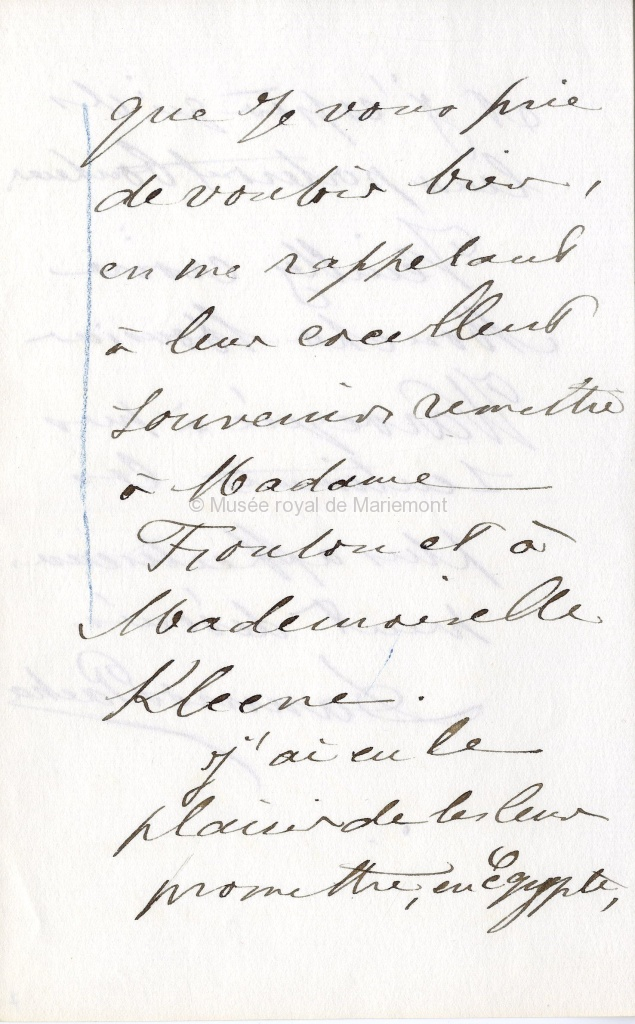 que je vous prie
de vouloir bien,
en me rappelant
à leur excellent
souvenir, remettre
à Madame
© Musée royal de Mariemont
et à
Mademoiselle
Kleene.
j'ai eu le
plaisir de les leur
promettre, en Egypte,